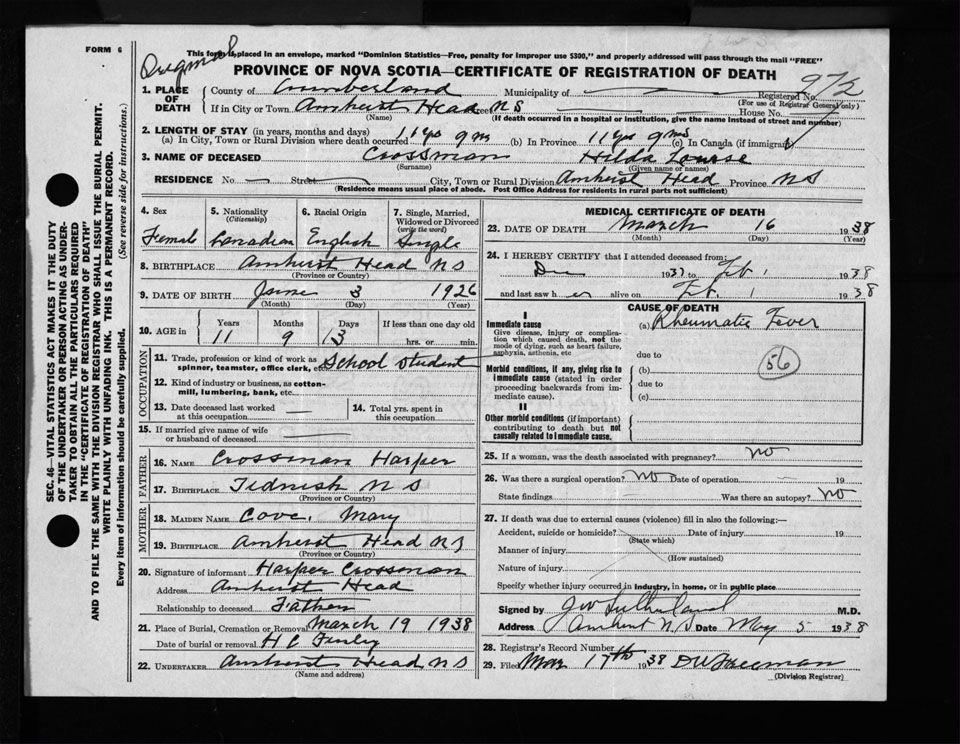 FORM 6
This form is placed in an envelope, marked "Dominion Statistics—Free, penalty for improper use $300," and properly addressed will pass through the mail "FREE"
PROVINCE OF NOVA SCOTIA—CERTIFICATE OF REGISTRATION OF DEATH
1. PLACE OF DEATH
County of Cumberland Municipality of — Registered No. 972
(For use of Registrar General only)
If in City or Town Amherst Head Street NS House No.
(Name) (If death occurred in a hospital or institution, give the name instead of street and number)
2. LENGTH OF STAY (in years, months and days)
(a) In City, Town or Rural Division where death occurred 11 yrs 9 ms (b) In Province 11 yrs 9 ms (c) In Canada (if immigrant)
3. NAME OF DECEASED Crossman Hilda Louise
(Surname) (Given name or names)
RESIDENCE No. — Street — City, Town or Rural Division Amherst Head Province NS
(Residence means usual place of abode. Post Office Address for residents in rural parts not sufficient)
4. Sex
Female
5. Nationality
(Citizenship)
Canadian
6. Racial Origin
English
7. Single, Married, Widowed or Divorced
(write the word)
Single
8. BIRTHPLACE Amherst Head NS
(Province or Country)
9. DATE OF BIRTH June 3 1926
(Month) (Day) (Year)
10. AGE in
Years Months Days If less than one day old
11 9 13 hrs. or min.
OCCUPATION
11. Trade, profession or kind of work as spinner, teamster, office clerk, etc. School Student
12. Kind of industry or business, as cotton-mill, lumbering, bank, etc.
13. Date deceased last worked at this occupation —
14. Total yrs. spent in this occupation
15. If married give name of wife or husband of deceased —
FATHER
16. NAME Crossman Harper
17. BIRTHPLACE Tidnish N S
(Province or Country)
MOTHER
18. MAIDEN NAME Cove, Mary
19. BIRTHPLACE Amherst Head NS
(Province or Country)
20. Signature of informant Harper Crossman
Address Amherst Head
Relationship to deceased Father
21. Place of Burial, Cremation or Removal March 19 1938
Date of burial or removal H C
22. UNDERTAKER Amherst Head N S
(Name and address)
MEDICAL CERTIFICATE OF DEATH
23. DATE OF DEATH March 16 1938
(Month) (Day) (Year)
24. I HEREBY CERTIFY that I attended deceased from:
Dec 1937 to Feb 1 1938
and last saw her alive on Feb. 1 1938
CAUSE OF DEATH
I
Immediate cause
Give disease, injury or complication which caused death, not the mode of dying, such as heart failure, asphyxia, asthenia, etc
Morbid conditions, if any, giving rise to immediate cause (stated in order proceeding backwards from immediate cause).
II
Other morbid conditions (if important) contributing to death but not causally related to immediate cause.
(a) Rheumatic Fever
due to
(b)
due to
(c)
56
25. If a woman, was the death associated with pregnancy? No
26. Was there a surgical operation? No Date of operation — 19
State findings Was there an autopsy? No
27. If death was due to external causes (violence) fill in also the following:—
Accident, suicide or homicide? Date of injury 19
(State which)
Manner of injury
(How sustained)
Nature of injury
Specify whether injury occurred in industry, in home, or in public place
Signed by J W Sutherland M.D.
Address Amherst N.S Date May 5 1938
28. Registrar's Record Number
29. Filed Mar 17th 1938 D W Freeman
(Division Registrar)
SEC. 46—VITAL STATISTICS ACT MAKES IT THE DUTY
OF THE UNDERTAKER OR PERSON ACTING AS UNDER-
TAKER TO OBTAIN ALL THE PARTICULARS REQUIRED
IN THE "CERTIFICATE OF REGISTRATION OF DEATH"
AND TO FILE THE SAME WITH THE DIVISION REGISTRAR WHO SHALL ISSUE THE BURIAL PERMIT.
WRITE PLAINLY WITH UNFADING INK. THIS IS A PERMANENT RECORD.
Every item of information should be carefully supplied. (See reverse side for instructions.)